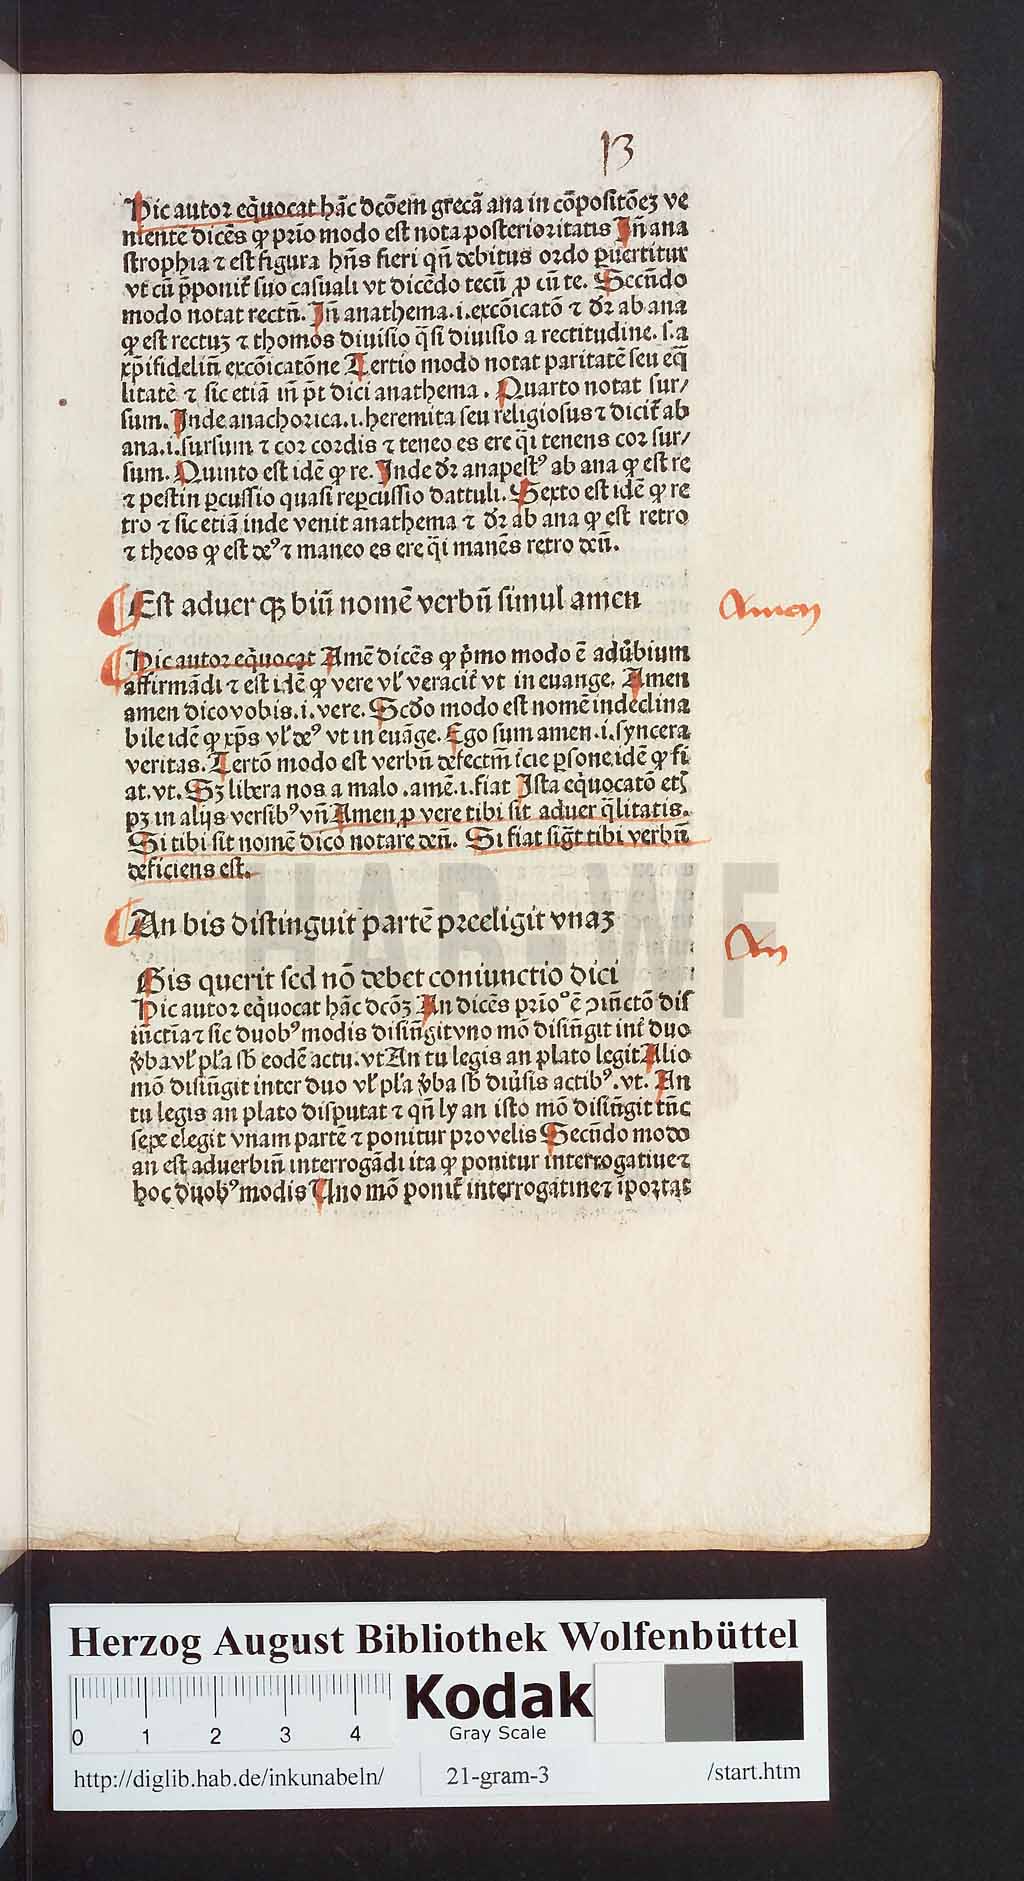 13
Hic autor eq̄uocat hāc dcōem grecā ana in cōpositōez ve
niente dicēs ꝙ prīo modo est nota posterioritatis Iñ ana
strophia ⁊ est figura hñs fieri qñ debitus ordo ꝑuertitur
vt cū p̄ponit᷑ suo casuali vt dicēdo tecū ꝓ cū te. Secūdo
modo notat rectū. Iñ anathema .i. excōicatō ⁊ dr̄ ab ana
ꝙ est rectuz ⁊ thomos diuisio q̄si diuisio a rectitudine .s. a
xp̄ifideliū excōicatōne Tertio modo notat paritatē seu eq̄
litatē ⁊ sic etiā iñ p̄t dici anathema . Quarto notat sur/
sum. Inde anachorica .i. heremita seu religiosus ⁊ dicit᷑ ab
ana .i. sursum ⁊ cor cordis ⁊ teneo es ere q̄i tenens cor sur/
sum. Quinto est idē ꝙ re. Inde dr̄ anapestꝰ ab ana ꝙ est re
⁊ pestin ꝑcussio quasi reꝑcussio dattuli. Sexto est idē ꝙ re
tro ⁊ sic etiā inde venit anathema ⁊ dr̄ ab ana ꝙ est retro
⁊ theos ꝙ est deꝰ ⁊ maneo es ere q̄i manēs retro deū.
¶ Est aduer qꝫ biū nomē verbū simul amen
Amen
¶ Hic autor eq̄uocat Amē dicēs ꝙ p̄mo modo ē adu̓bium
affirmādi ⁊ est idē ꝙ vere vl̓ veracit᷑ vt in euange. Amen
amen dico vobis .i. vere. Scd̓o modo est nomē indeclina
bile idē ꝙ xp̄s vl̓ deꝰ vt in euāge. Ego sum amen .i. syncera
veritas. Tertō modo est verbū defectm̄ t̓cie ꝑsone idē ꝙ fi
at. vt. Sꝫ libera nos a malo .amē .i. fiat Ista eq̄uocatō etꝫ
pꝫ in alijs versibꝰ vñ Amen ꝓ vere tibi sit aduer q̄litatis.
Si tibi sit nomē dico notare deū. Si fiat sigt̄ tibi verbū
deficiens est.
¶ An bis distinguit partē preeligit vnaꝫ
An
Bis querit sed nō debet coniunctio dici
Hic autor eq̄uocat hāc dcōꝫ An dicēs prīo ꝰ ē ꝯiūctō dis
iūctīa ⁊ sic duobꝰ modis disiūgit vno mō disiūgit int᷑ duo
v̓ba vl̓ pl̓a sb̄ eodē actu. vt An tu legis an plato legit Alio
mō disiūgit inter duo vl̓ pl̓a v̓ba sb̄ diu̓sis actibꝰ. vt. An
tu legis an plato disputat ⁊ qñ ly an isto mō disiūgit tūc
sepe elegit vnam partē ⁊ ponitur pro velis Secūdo modo
an est aduerbiū interrogādi ita ꝙ ponitur interrogatiue ⁊
hoc duobꝰ modis Uno mō ponit᷑ interrogatiue ⁊ īportat
HAB-WF
Herzog August Bibliothek Wolfenbüttel
0 1 2 3 4
Kodak
Gray Scale
http://diglib.hab.de/inkunabeln/ 21-gram-3 /start.htm